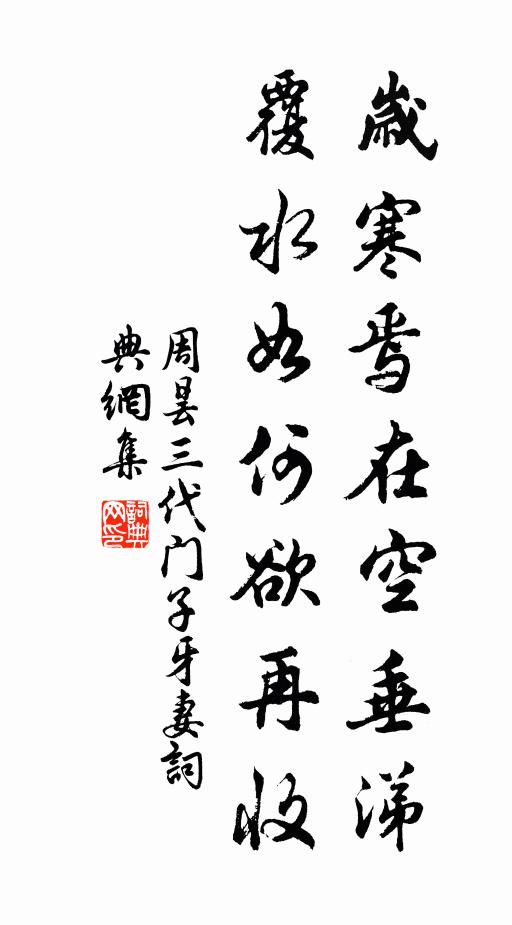 歲寒焉在空垂涕
覆水如何欲再收
周曇三代门子牙妻詞
典網集
詞典网印